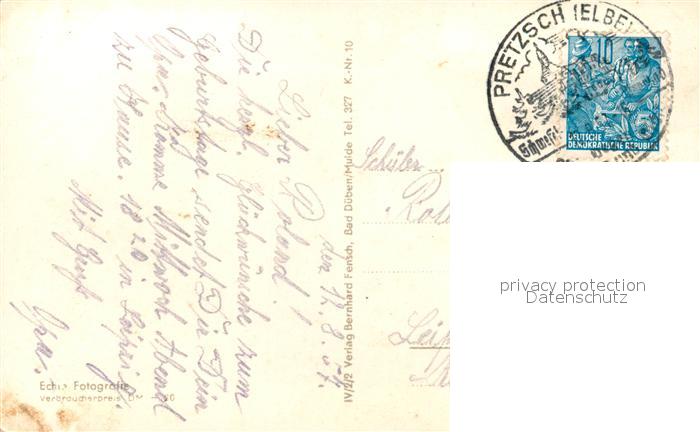 den 17. 8. 57.
Lieber Roland!
Die herzl. Glückwünsche zum
Geburtstage sendet Dir Dein
Opa. Komme Mittwoch Abend
zu Hause. 18 20 in Leipzig.
Mit Gruß
Opa.
Echte Fotografie
Verbraucherpreis DM
IV/2/2 Verlag Bernhard Fensch, Bad Düben/Mulde Tel. 327 K.-Nr. 10
PRETZSCH (ELBE)
10
5
DEUTSCHE
DEMOKRATISCHE REPUBLIK
Schüler
privacy protection
Datenschutz